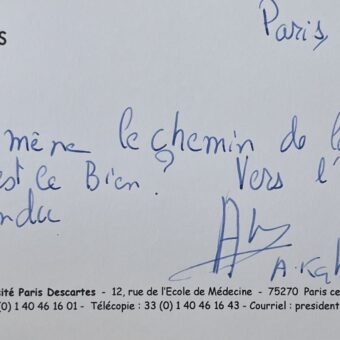 s
Paris,
mène le chemin de l
est ce Bien ? Vers l'
A.Kah
sité Paris Descartes - 12, rue de l'Ecole de Médecine - 75270 Paris ce
(0) 1 40 46 16 01 - Télécopie : 33 (0) 1 40 46 16 43 - Courriel : president